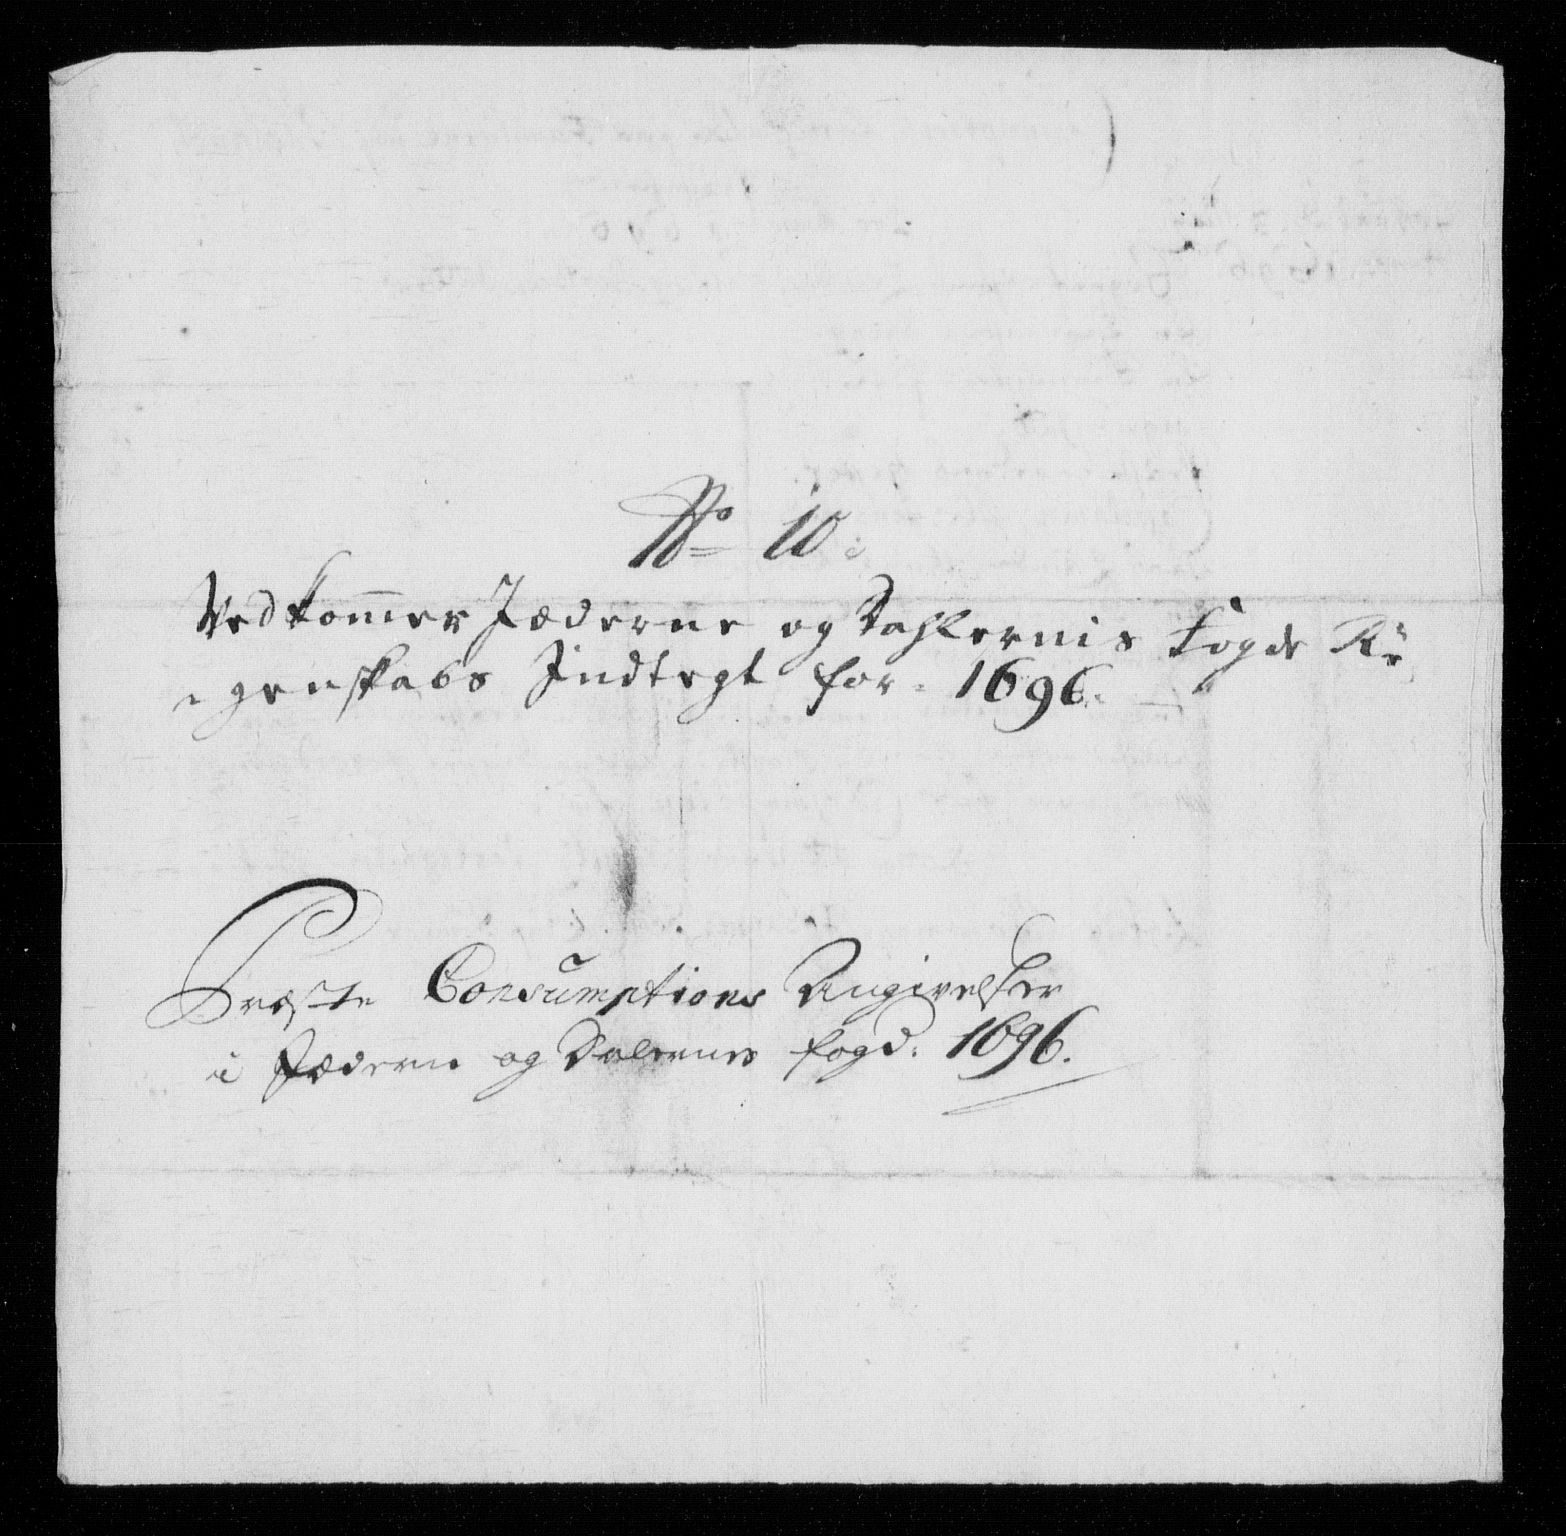 No 10:
Vedkommer Jæderne og Dahlernis Fogde Re
genskabs Jndtegt for 1696.
Præste Consumptions Angivelser
i Jæderen og Dalernes fogd. 1696.